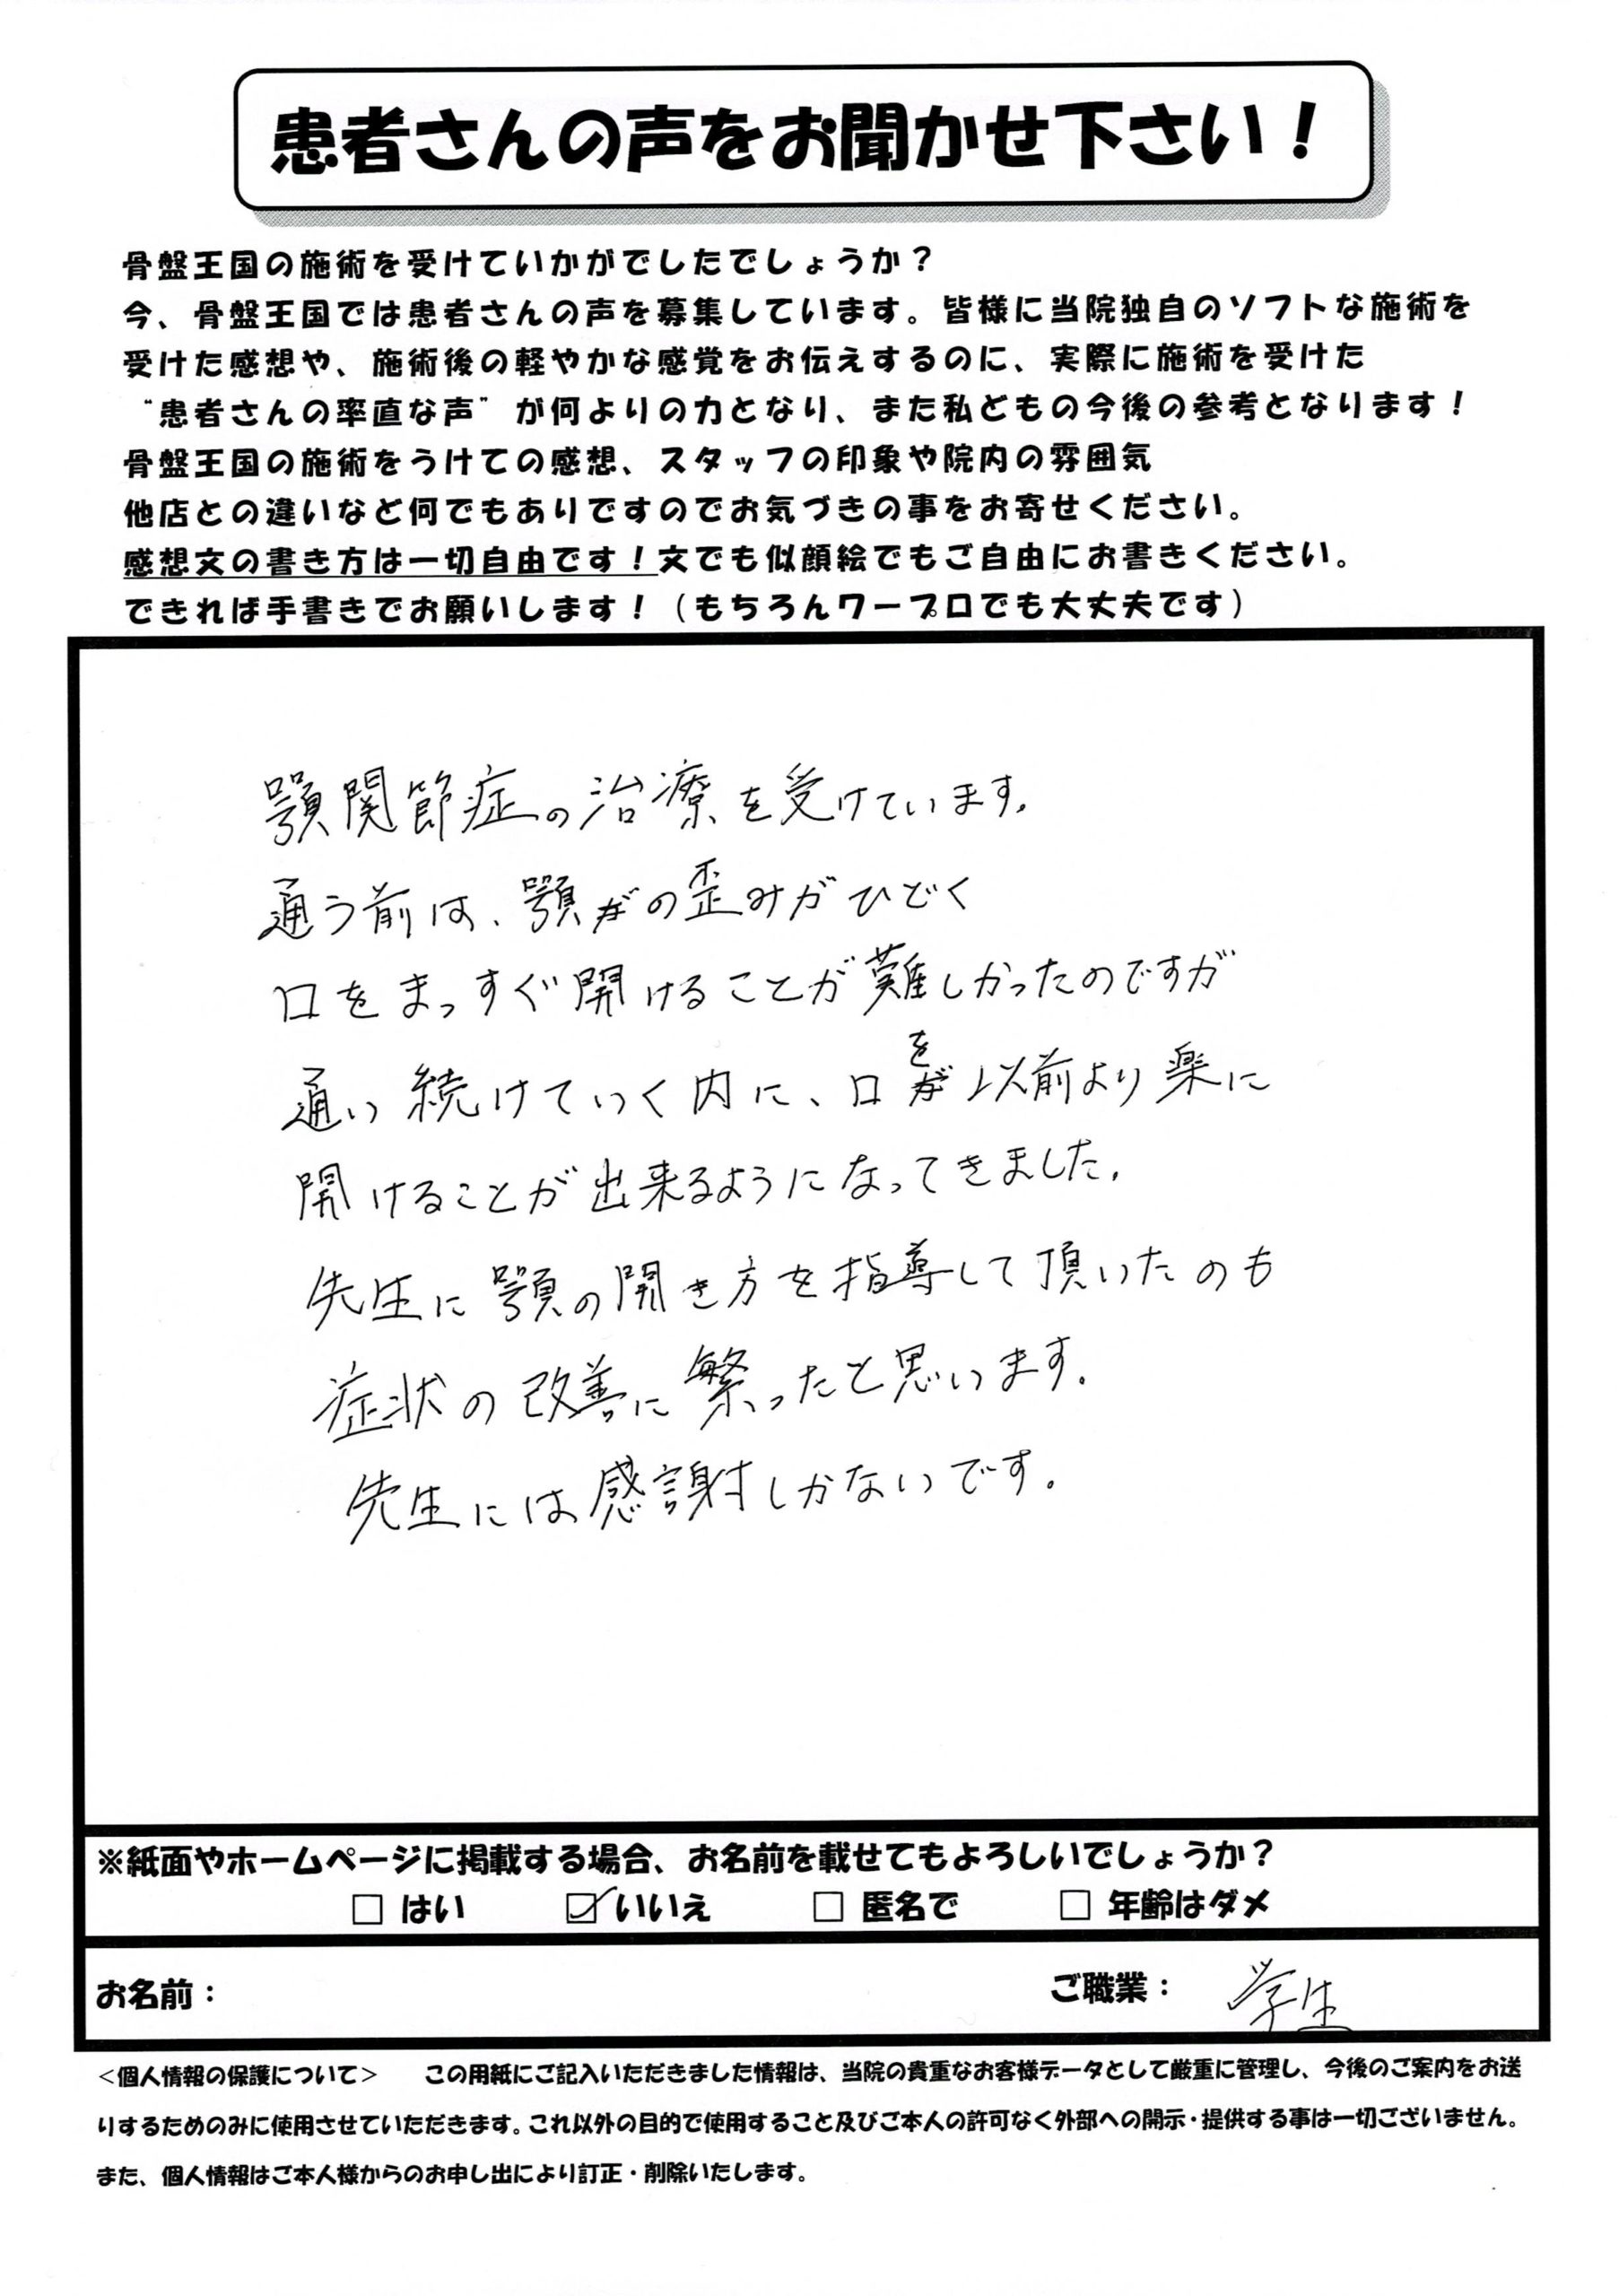 患者さんの声をお聞かせ下さい！
骨盤王国の施術を受けていかがでしたでしょうか？
今、骨盤王国では患者さんの声を募集しています。皆様に当院独自のソフトな施術を
受けた感想や、施術後の軽やかな感覚をお伝えするのに、実際に施術を受けた
“患者さんの率直な声”が何よりの力となり、また私どもの今後の参考となります！
骨盤王国の施術をうけての感想、スタッフの印象や院内の雰囲気
他店との違いなど何でもありですのでお気づきの事をお寄せください。
感想文の書き方は一切自由です！文でも似顔絵でもご自由にお書きください。
できれば手書きでお願いします！（もちろんワープロでも大丈夫です）
顎関節症の治療を受けています。
通う前は、顎の歪みがひどく
口をまっすぐ開けることが難しかったのですが
通い続けていく内に、口を以前より楽に
開けることが出来るようになってきました。
先生に顎の開き方を指導して頂いたのも
症状の改善に繋ったと思います。
先生には感謝しかないです。
※紙面やホームページに掲載する場合、お名前を載せてもよろしいでしょうか？
□ はい ☑ いいえ □ 匿名で □ 年齢はダメ
お名前： ご職業： 学生
＜個人情報の保護について＞ この用紙にご記入いただきました情報は、当院の貴重なお客様データとして厳重に管理し、今後のご案内をお送
りするためのみに使用させていただきます。これ以外の目的で使用すること及びご本人の許可なく外部への開示・提供する事は一切ございません。
また、個人情報はご本人様からのお申し出により訂正・削除いたします。